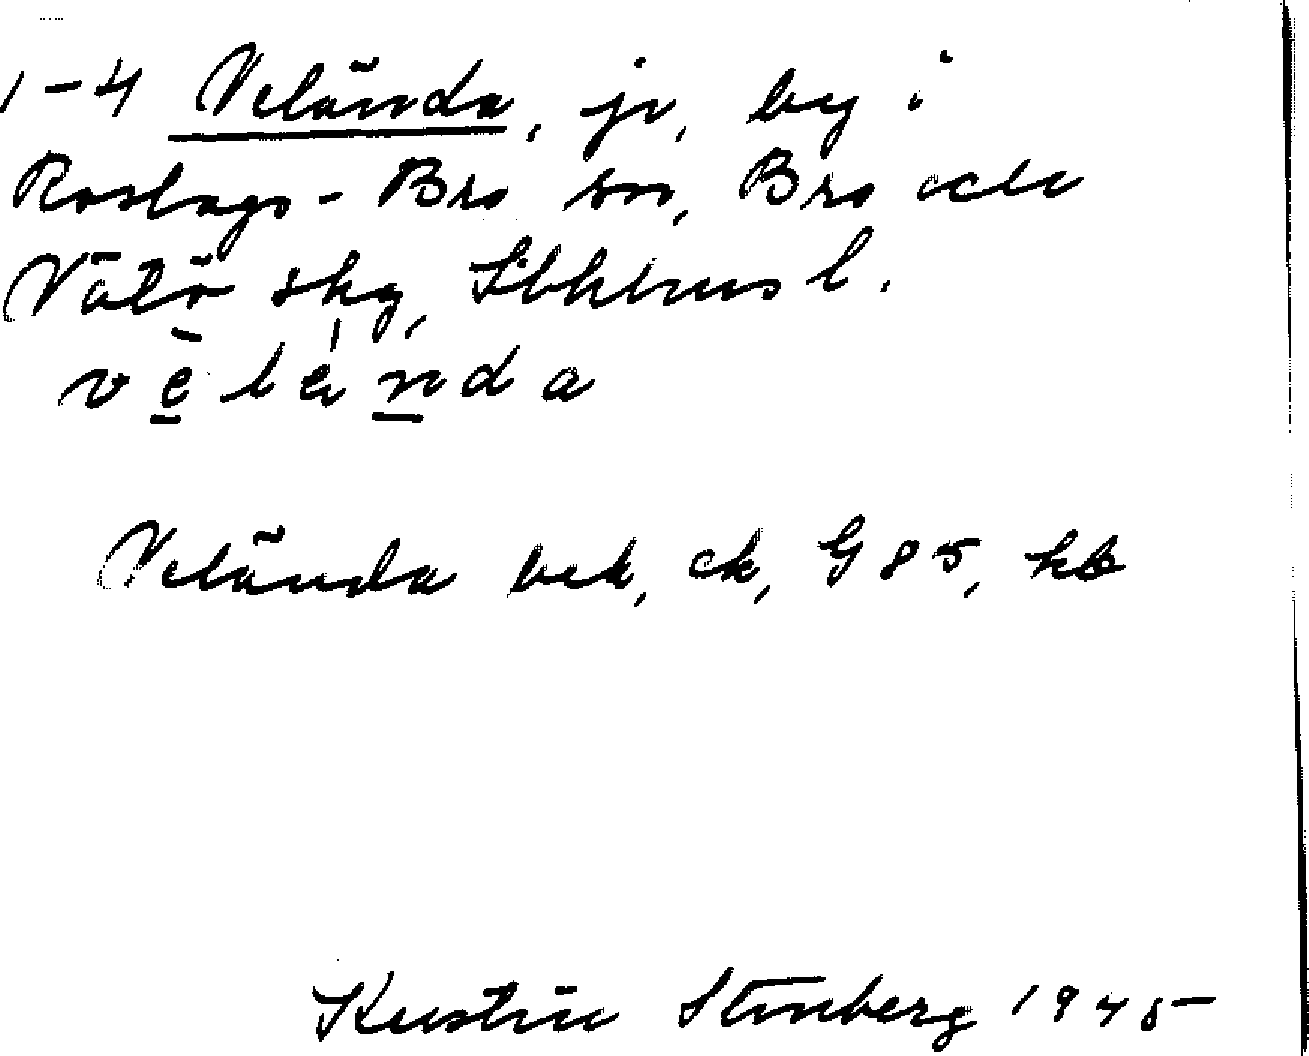 1-4 Velända, jr, by i
Roslags-Bro sn, Bro och
Vätö skg, Sthlms l.
velända
Velända bek, ek, G 85, kb
Kerstin Stenberg 1945